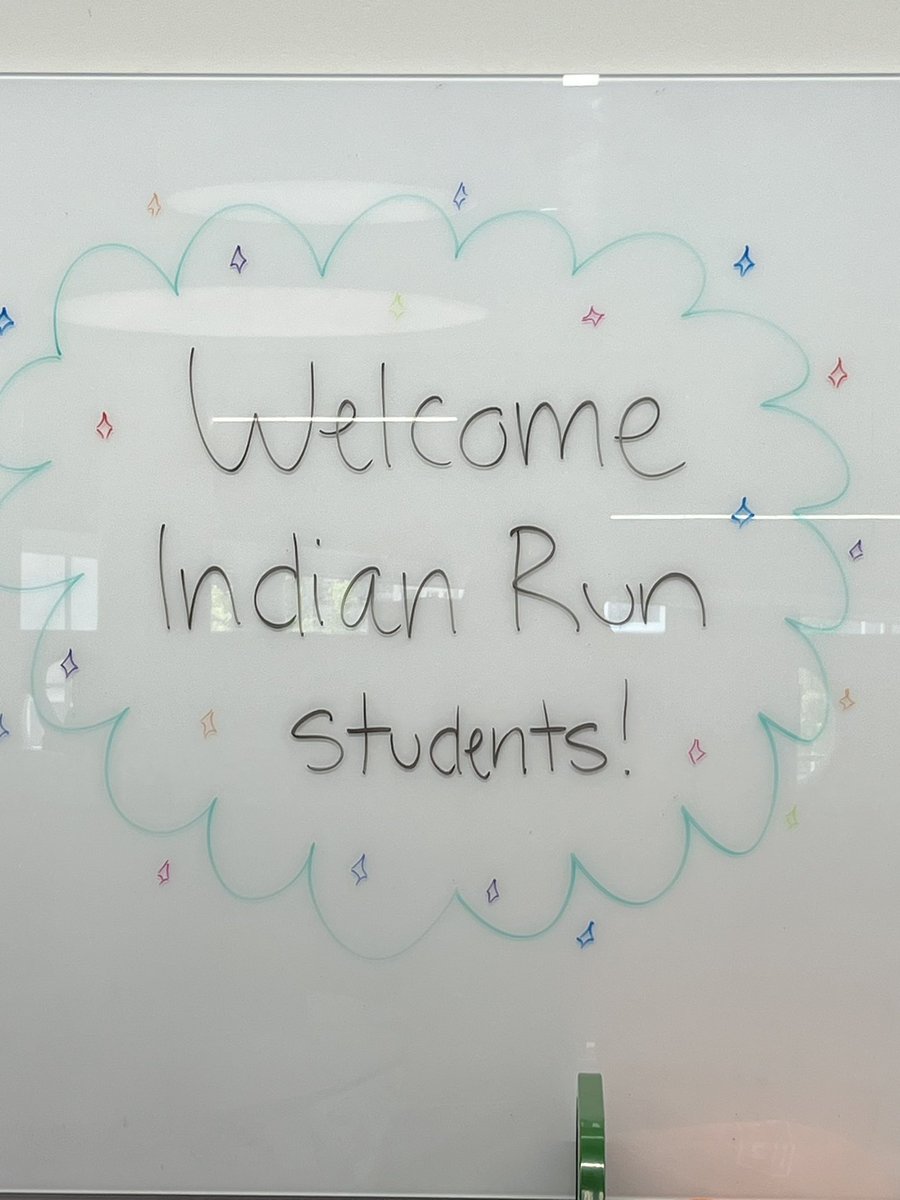 Welcome
Indian Run
students!